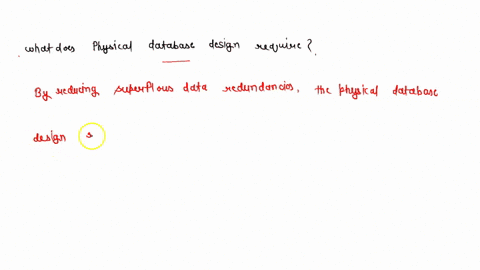 what does Physical database design reqjuire?
By reducing superflous data redundancies, the physical database
design s